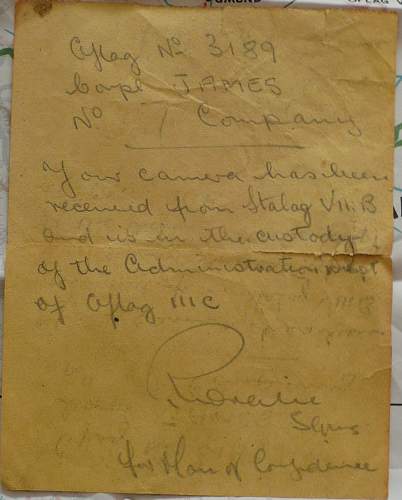 Oflag No 3189
Corpl JAMES
No 7 Company
Your camera has been
received from Stalag VII.B
and is in the custody
of the Administration Dept
of Oflag IIIC
Sgns
for Man of Confidence